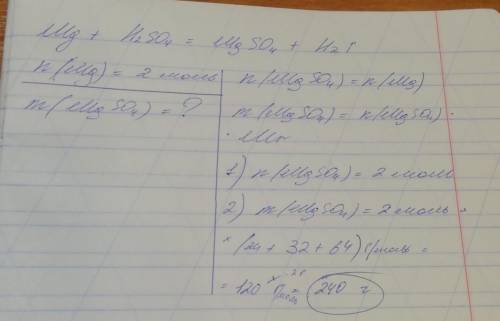 Mg + H₂SO₄ = MgSO₄ + H₂↑
n(Mg) = 2 моль
m(MgSO₄) = ?
n(MgSO₄) = n(Mg)
m(MgSO₄) = n(MgSO₄) ·
· Mr
1) n(MgSO₄) = 2 моль
2) m(MgSO₄) = 2 моль ×
× (24 + 32 + 64) г/моль =
= 120 × 240 г